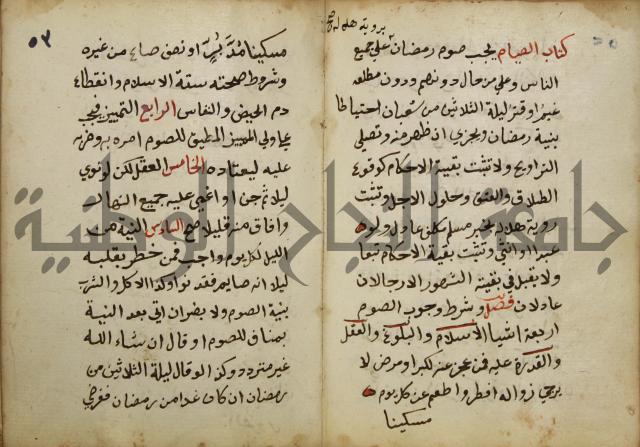 برؤية هلاله
كتاب الصيام يجب صوم رمضان على جميع
الناس وعلى من حال دونهم ودون مطلعه
غيم او قتر ليلة الثلاثين من شعبان احتياطا
بنية رمضان ويجزي ان ظهر منه وتصلى
التراويح ولا تثبت بقية الاحكام كوقوع
الطلاق والعتق وحلول الاجل وتثبت
روية هلاله بخبر مسلم مكلف عدل ولو
عبدا او انثى وتثبت بقية الاحكام تبعا
ولا يقبل في بقية الشهور الا رجلان
عدلان فصل وشرط وجوب الصوم
اربعة اشيا الاسلام والبلوغ والعقل
والقدرة عليه فمن عجز عنه لكبر او مرض لا
يرجى زواله افطر واطعم عن كل يوم
مسكينا
٥٣
مسكينا مد بر او نصف صاع من غيره
وشروط صحته ستة الاسلام وانقطاع
دم الحيض والنفاس الرابع التمييز فيجب
على ولي المميز المطيق للصوم امره به وضربه
عليه ليعتاده الخامس العقل لكن لو نوى
ليلا ثم جن او اغمي عليه جميع النهار
وافاق منه قليلا صح السادس النية من
الليل لكل يوم واجب فمن خطر بقلبه
ليلا انه صايم فقد نوى وكذا الاكل والشرب
بنية الصوم ولا يضر ان اتى بعد النية
بمناف للصوم او قال ان شاء الله
غير متردد وكذا لو قال ليلة الثلاثين من
رمضان ان كان غدا من رمضان ففرضي
جامعة النجاح الوطنية